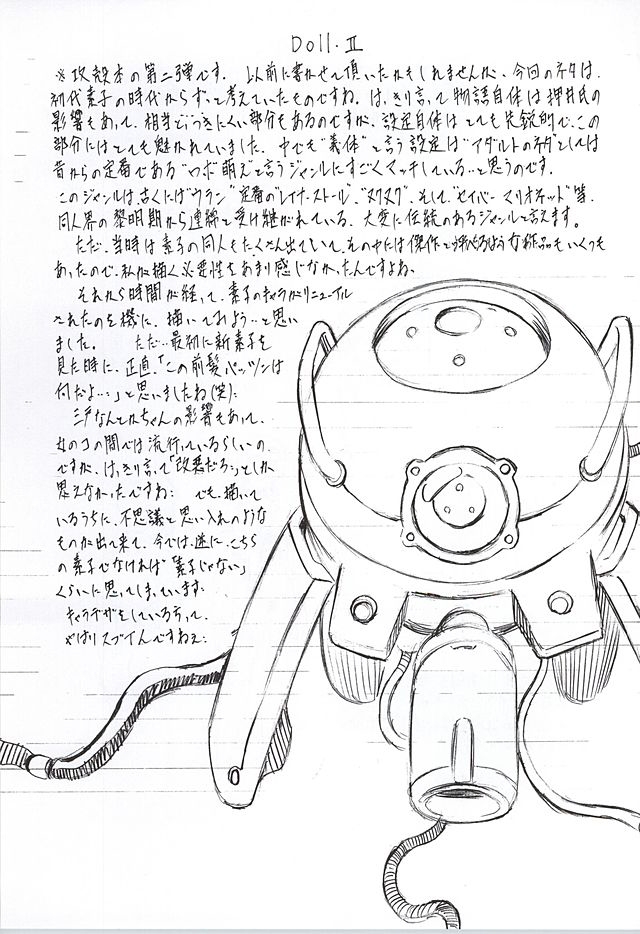 Doll.Ⅱ
※攻殻本の第二弾です。以前に書かせて頂いたかもしれませんが、今回のネタは、
初代素子の時代からずっと考えていたものですね。はっきり言って物語自体は押井氏の
影響もあって、相当とっつきにくい部分もあるのですが、設定自体はとても先鋭的で、この
部分にはとても魅かれていました。中でも"義体"と言う設定は"アダルトのネタ"としては
昔からの定番である"ロボ萌え"と言うジャンルにすごくマッチしている…と思うのです。
このジャンルは、古くには"ウラン"定番の"レイナ・ストール"、"ヌクヌク"、そして"セイバーマリオネット"等、
同人界の黎明期から連綿と受け継がれている、大変に伝統のあるジャンルと言えます。
ただ、当時は素子の同人もたくさん出ていて、その中には傑作と呼べるような作品もいくつも
あったので、私が描く必要性をあまり感じなかったんですよね。
それから時間が経って、素子のキャラがリニューアル
されたのを機に、描いてみよう…と思い
ました。ただ…最初に新素子を
見た時に、正直、「この前髪パッツンは
何だよ…」と思いましたね(笑)。
三戸なんとかちゃんの影響もあって、
女のコの間では流行っているらしいの
ですが、はっきり言って「改悪だろっ」としか
思えなかったですね。でも、描いて
いるうちに、不思議と思い入れのような
ものが出て来て、今では、逆に、こちら
の素子でなければ「素子じゃない」
くらいに思ってしまっています。
キャラデザをしている方って、
やはりスゴイんですねぇ。